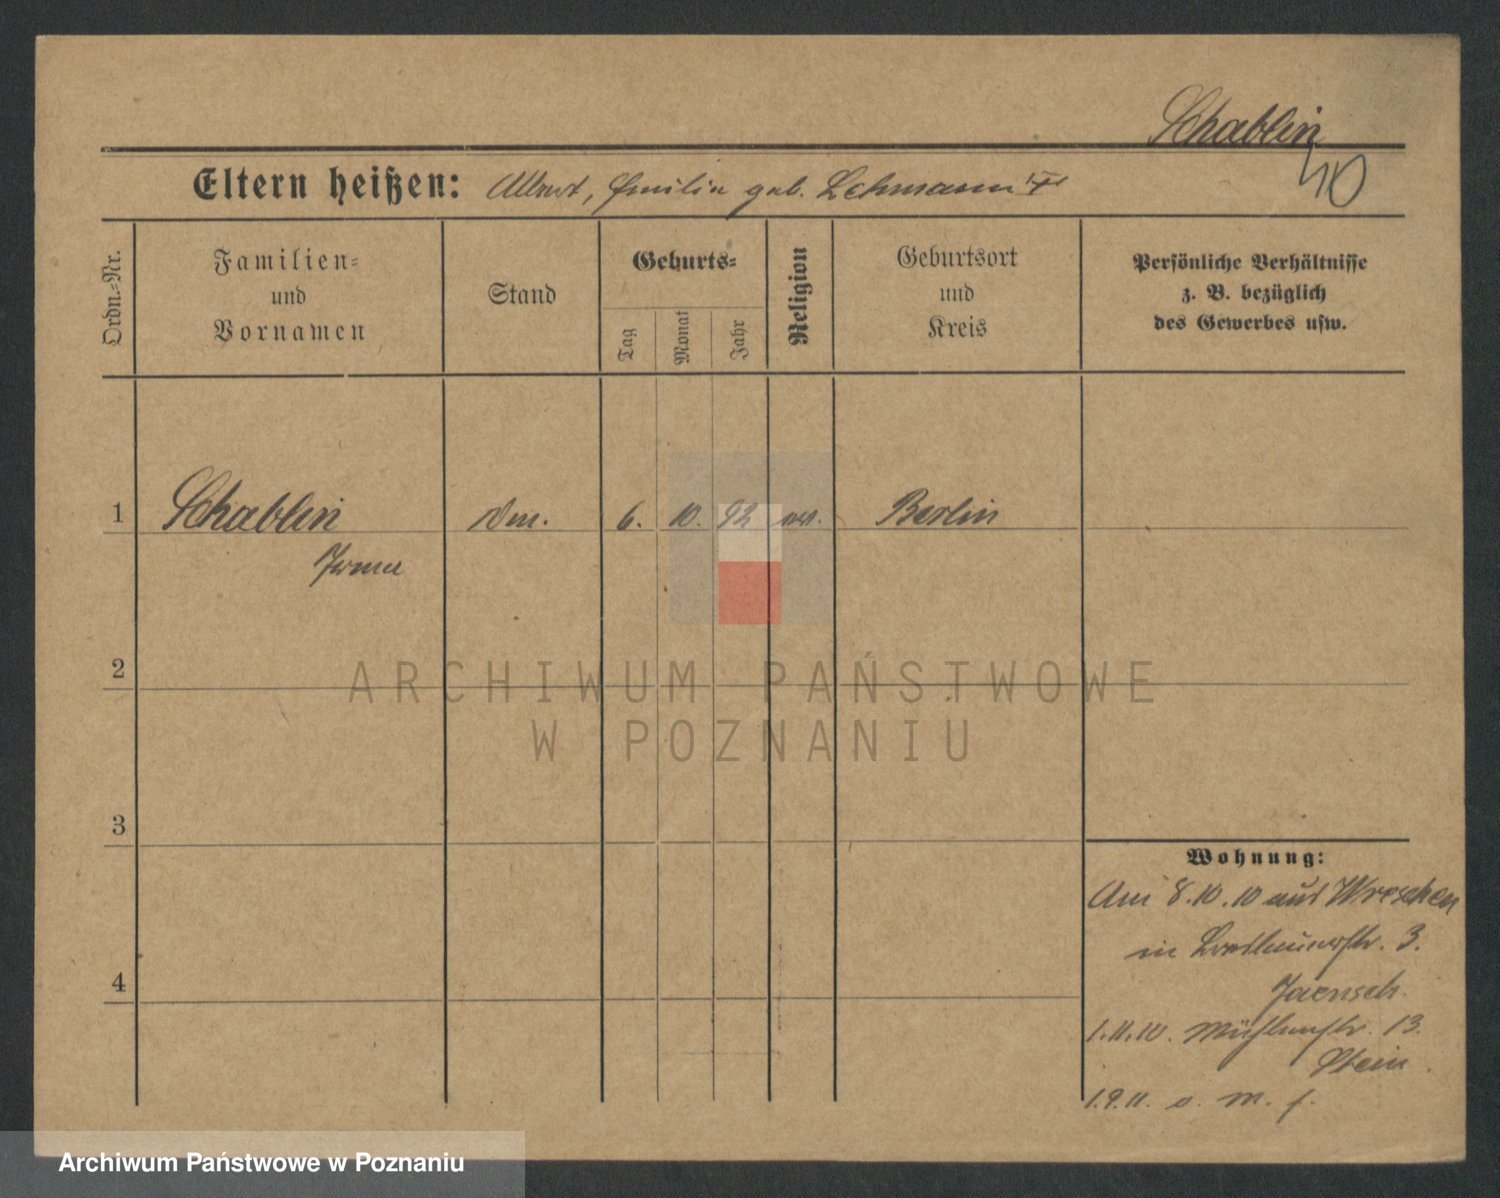 Schaeblin
Eltern heißen: Albert, Emilie geb. Lehmann
40
Ordn.-Nr.
Familien-
und
Vornamen
Stand
Geburts-
Tag
Monat
Jahr
Religion
Geburtsort
und
Kreis
Persönliche Verhältnisse
z. B. bezüglich
des Gewerbes usw.
1 Schaeblin 6. 10. 92 Berlin
Irma
2
ARCHIWUM PAŃSTWOWE
W POZNANIU
3
Wohnung:
Am 8.10.10 aus Wreschen
in 3.
4
Jaensch.
1.11.10. Mühlenstr. 13.
Stein
1.9.11. o. M. f.
Archiwum Państwowe w Poznaniu